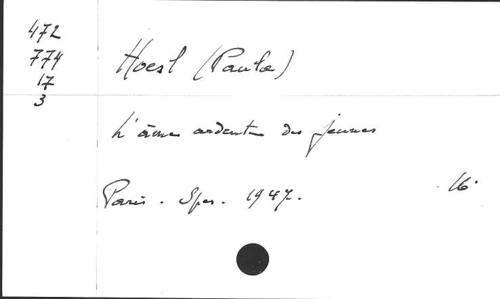 472
774
17
3
Hoesl (Paula)
L'âme ardente des jeunes
Paris. Spes. 1947. 16°